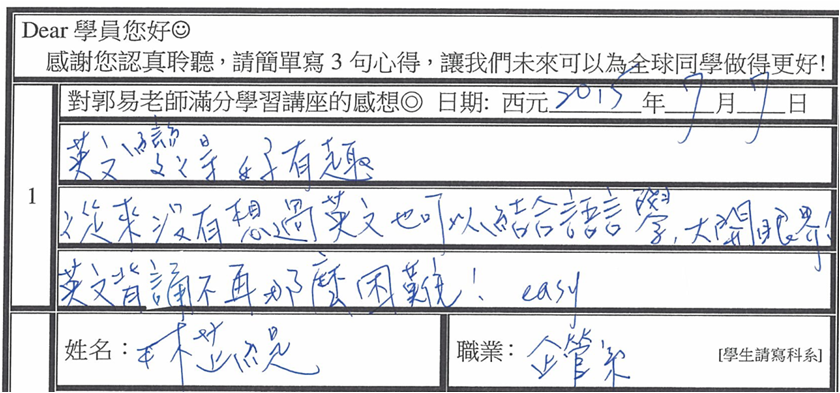 Dear 學員您好☺
感謝您認真聆聽，請簡單寫 3 句心得，讓我們未來可以為全球同學做得更好!
對郭易老師滿分學習講座的感想◎ 日期: 西元 2015 年 7 月 7 日
1
英文 好有趣
從來沒有想過英文也可以結合語言學，大開眼界!
英文背誦不再那麼困難！ easy
姓名： 林 職業： 企管系 [學生請寫科系]